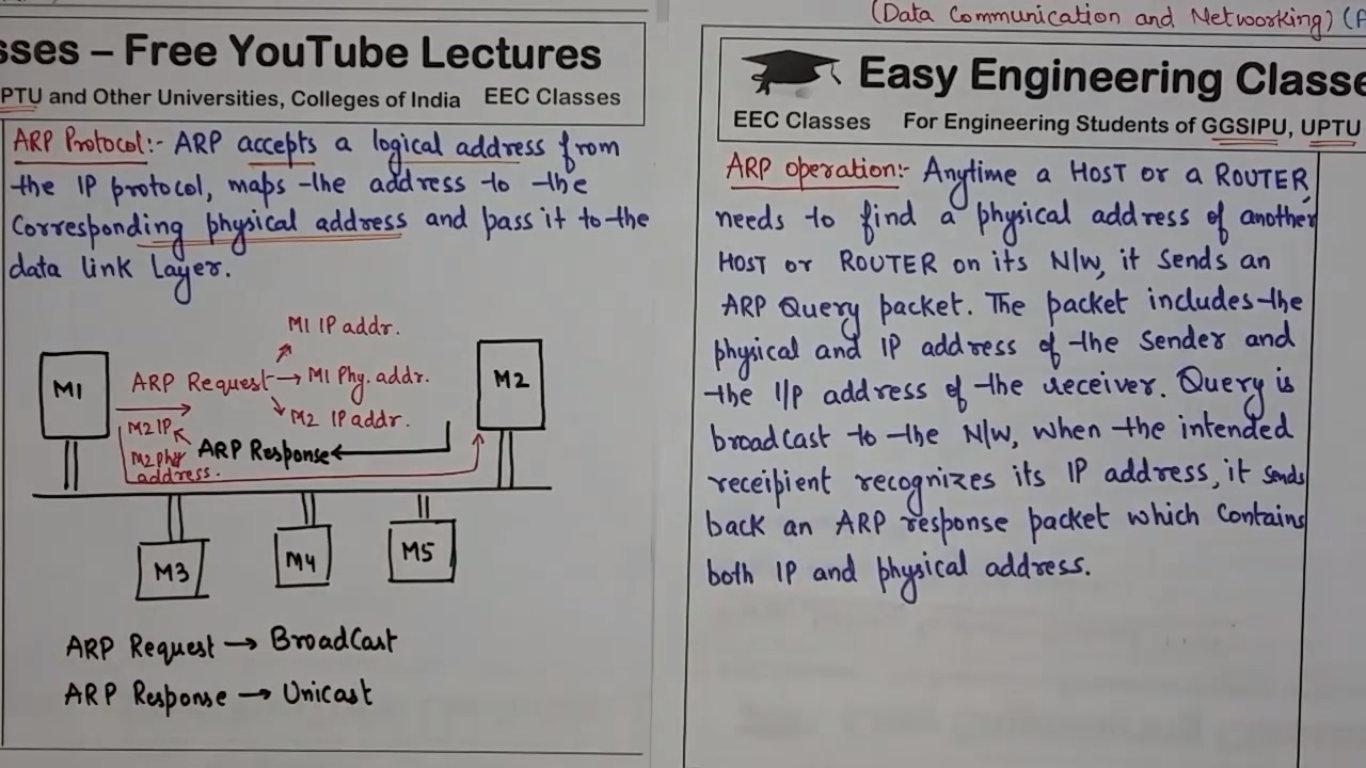 sses – Free YouTube Lectures
PTU and Other Universities, Colleges of India EEC Classes
ARP Protocol:- ARP accepts a logical address from
the IP protocol, maps the address to the
Corresponding physical address and pass it to the
data link Layer.
M1 IP addr.
M1
ARP Request → M1 Phy. addr.
M2 IP addr.
M2
M2 IP
ARP Response
M2 Phy
address.
M3
M4
M5
ARP Request → BroadCast
ARP Response → Unicast
(Data Communication and Networking)
Easy Engineering Classe
EEC Classes For Engineering Students of GGSIPU, UPTU
ARP operation:- Anytime a HOST or a ROUTER
needs to find a physical address of another
HOST or ROUTER on its N/W, it sends an
ARP Query packet. The packet includes the
physical and IP address of the sender and
the I/P address of the receiver. Query is
broadcast to the N/W, when the intended
receipient recognizes its IP address, it sends
back an ARP response packet which contains
both IP and physical address.